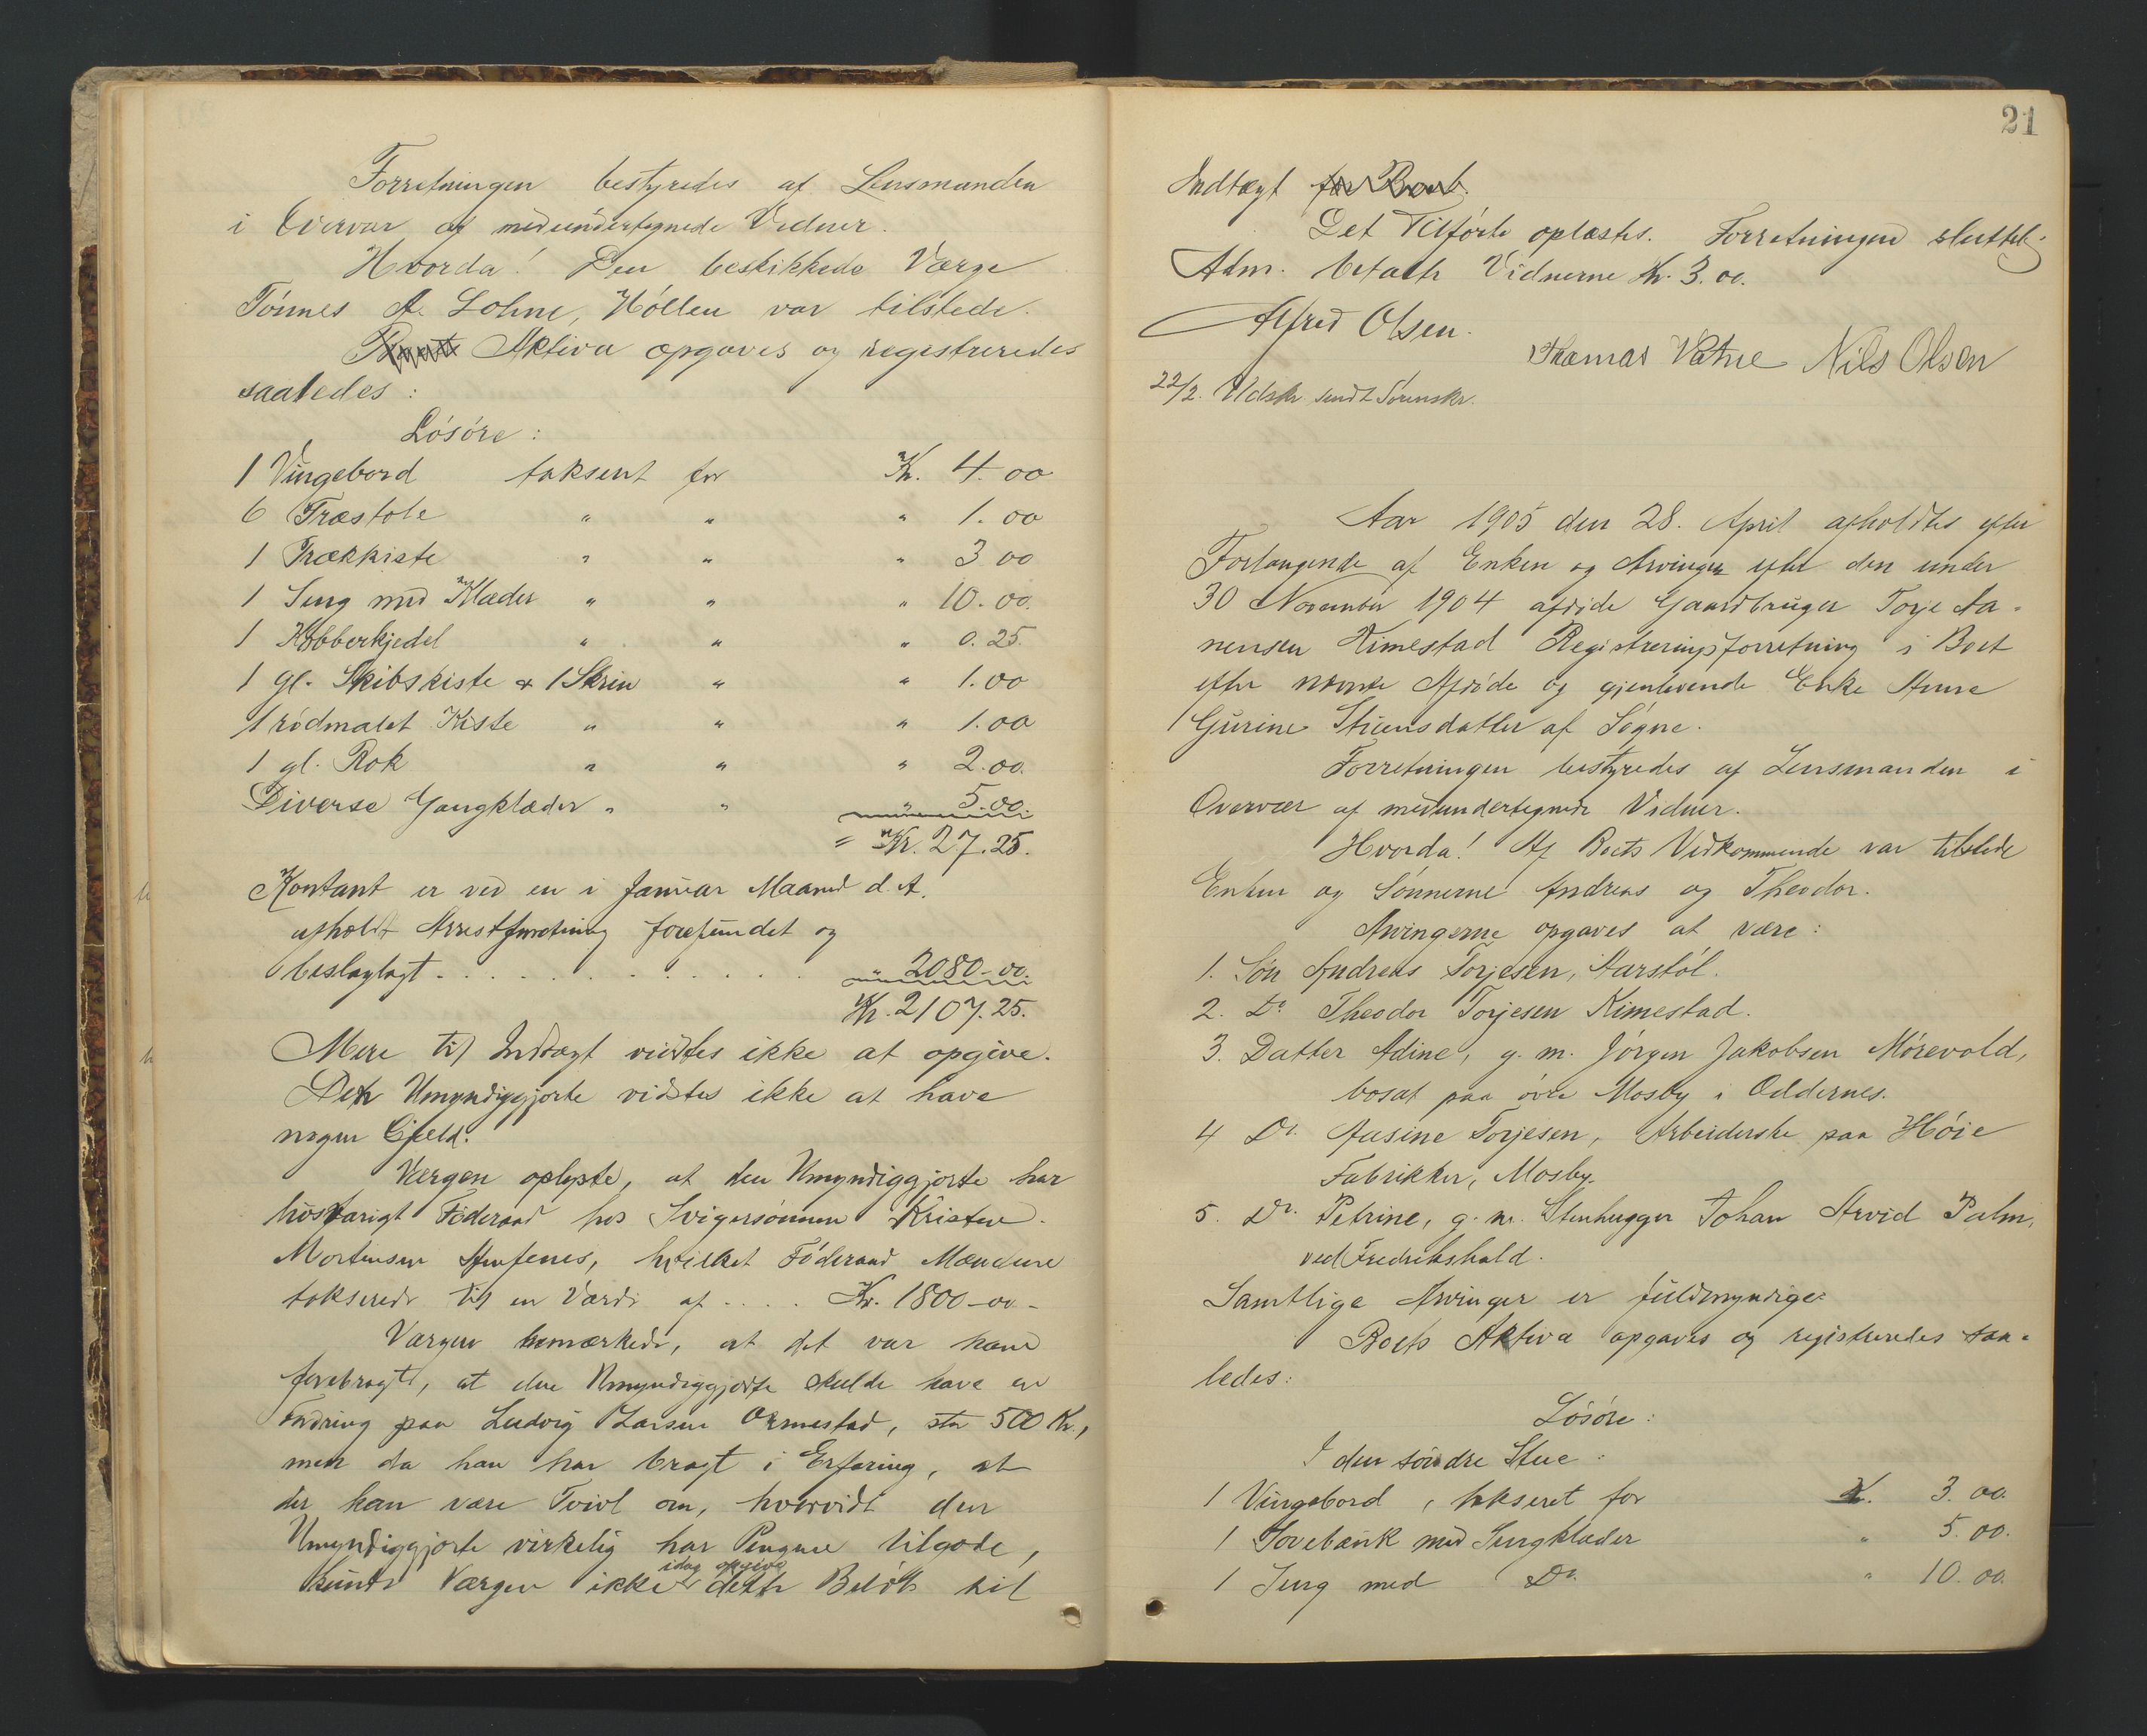 Forretningen bestyredes af Lensmanden
i Overvær af medundertegnede Vidner.
Hvorda! Den beskikkede Værge
Tønnes A. Lohne, Høllen var tilstede.
Aktiva opgaves og registreredes
saaledes:
Løsøre:
1 Vingebord taksert for Kr. 4.00
6 Træstole " " " 1.00
1 Trækkiste " " " 3.00
1 Seng med Klæder " " " 10.00.
1 Kobberkjedel " " " 0.25.
1 gl. Skibskiste & 1 Skrin " " 1.00
1 rødmalet Kiste " " " 1.00
1 gl. Rok " " " 2.00.
Diverse Gangklæder " " " 5.00.
= Kr. 27.25.
Kontant er ved en i Januar Maaned d. A.
afholdt Arrestforretning forefundet og
beslaglagt . . . . . . . . . " 2080-00.
Kr. 2107.25.
Mere til Indtægt vidstes ikke at opgive.
Den Umyndiggjorte vidstes ikke at have
nogen Gjæld.
Værgen oplyste, at den Umyndiggjorte har
livsvarigt Føderaad hos Svigersønnen Kristen
Mortensen, hvilket Føderaad Mændene
takserede til en Værdi af . . . . Kr. 1800-00-
Værgen bemærkede, at det var ham
forebragt, at den Umyndiggjorte skulde have en
Fodring paa Ludvig Larsen Ormestad, stor 500 Kr.,
men da han har bragt i Erfaring, at
der kan være Tvivl om, hvorvidt den
Umyndiggjorte virkelig har Pengene tilgode,
kunde Værgen ikke idag opgive dette Beløb til
21
Indtægt for Boet.
Det Tilførte oplæstes. Forretningen sluttet.
Adm. betalte Vidnerne Kr. 3.00.
Alfred Olsen.
Thomas Vatne Nils Olsen
22/2. Udskr. sendt Sorenskr.
Aar 1905 den 28. April afholdtes efter
Forlangende af Enken og Arvinger efter den under
30 November 1904 afdøde Gaardbruger Torje Aa-
nensen Kimestad Registreringsforretning i Boet
efter nævnte Afdøde og gjenlevende Enke Anne
Gurine Stiensdatter af Søgne.
Forretningen bestyredes af Lensmanden i
Overvær af medundertegnede Vidner.
Hvorda! Af Boets Vedkommende var tilstede
Enken og Sønnerne Andreas og Theodor.
Arvingerne opgaves at være:
1. Søn Andreas Torjesen, Aarstøl.
2. Do. Theodor Torjesen Kimestad.
3. Datter Adine, g. m. Jørgen Jakobsen Mørevold,
bosat paa øvre Mosby i Oddernes.
4 Do. Jasine Torjesen, Arbeiderske paa Høie
Fabrikker, Mosby.
5. Do. Petrine, g. m. Stenhugger Johan Arvid Palm,
ved Fredrikshald.
Samtlige Arvinger er fuldmyndige.
Boets Aktiva opgaves og registreredes saa-
ledes:
Løsøre:
I den søndre Stue:
1 Vingebord, takseret for Kr. 3.00.
1 Sovebænk med Sengklæder " 5.00.
1 Seng med Do. " 10.00.